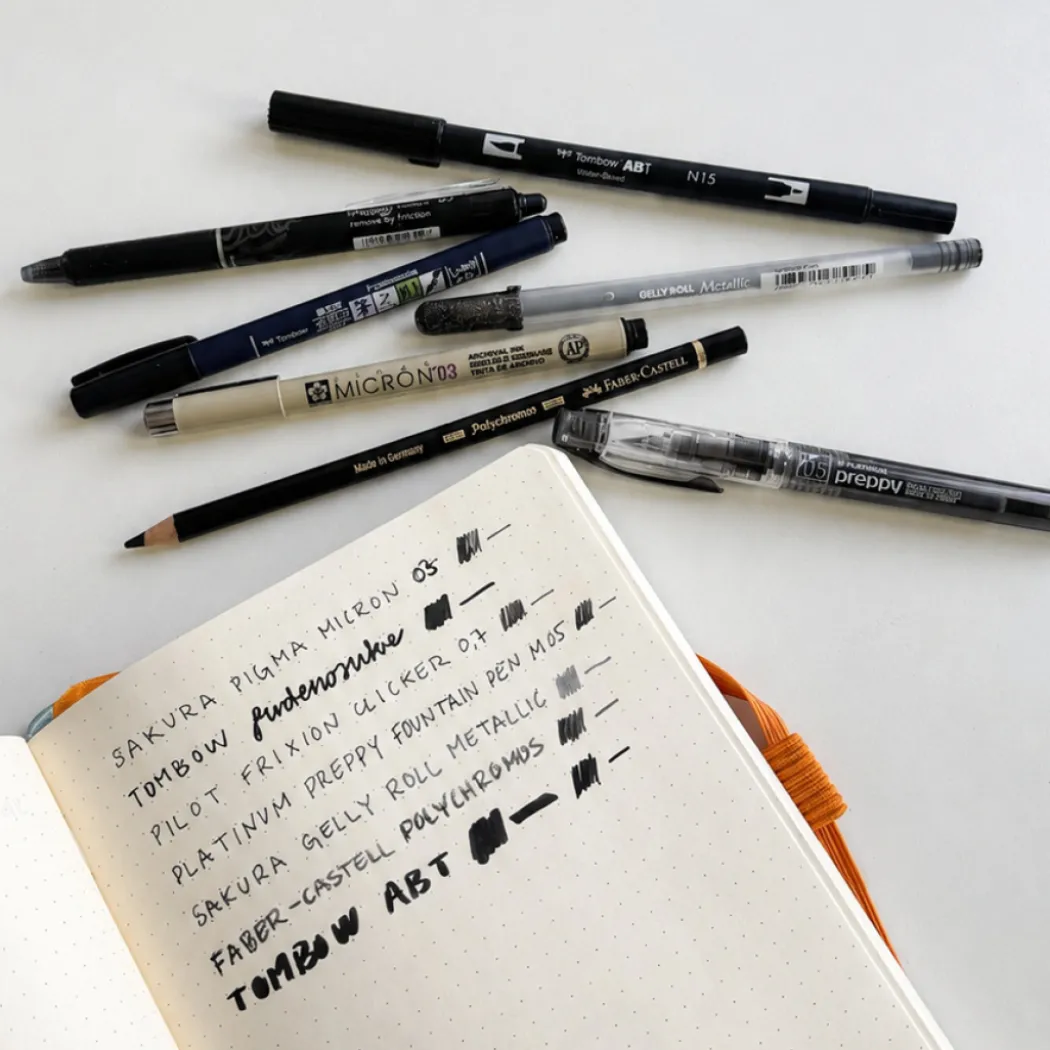 Tombow ABT
Water-Based
N15
remove by friction
Tombow
GELLY ROLL Metallic
MICRON 03
ARCHIVAL INK
TINTA DE ARCHIVO
AP
FABER-CASTELL
Polychromos
Made in Germany
05
preppy
SAKURA PIGMA MICRON 03
TOMBOW fudenosuke
PILOT FRIXION CLICKER 0,7
PLATINUM PREPPY FOUNTAIN PEN M05
SAKURA GELLY ROLL METALLIC
FABER-CASTELL POLYCHROMOS
TOMBOW ABT